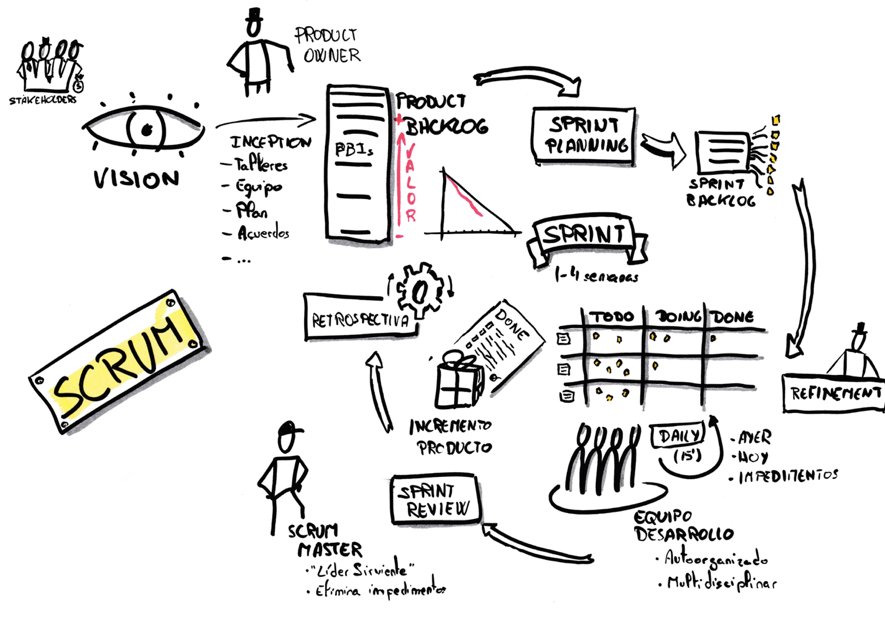 STAKEHOLDERS
VISION
PRODUCT
OWNER
INCEPTION
- Talleres
- Equipo
- Plan
- Acuerdos
- ...
PBIs
PRODUCT
BACKLOG
+
VALOR
-
SPRINT
PLANNING
SPRINT
BACKLOG
SPRINT
1-4 semanas
TODO DOING DONE
REFINEMENT
DAILY
(15')
- AYER
- HOY
- IMPEDIMENTOS
EQUIPO
DESARROLLO
• Autoorganizado
• Multidisciplinar
SPRINT
REVIEW
DONE
INCREMENTO
PRODUCTO
RETROSPECTIVA
SCRUM
SCRUM
MASTER
• "Líder Sirviente"
• Elimina impedimentos